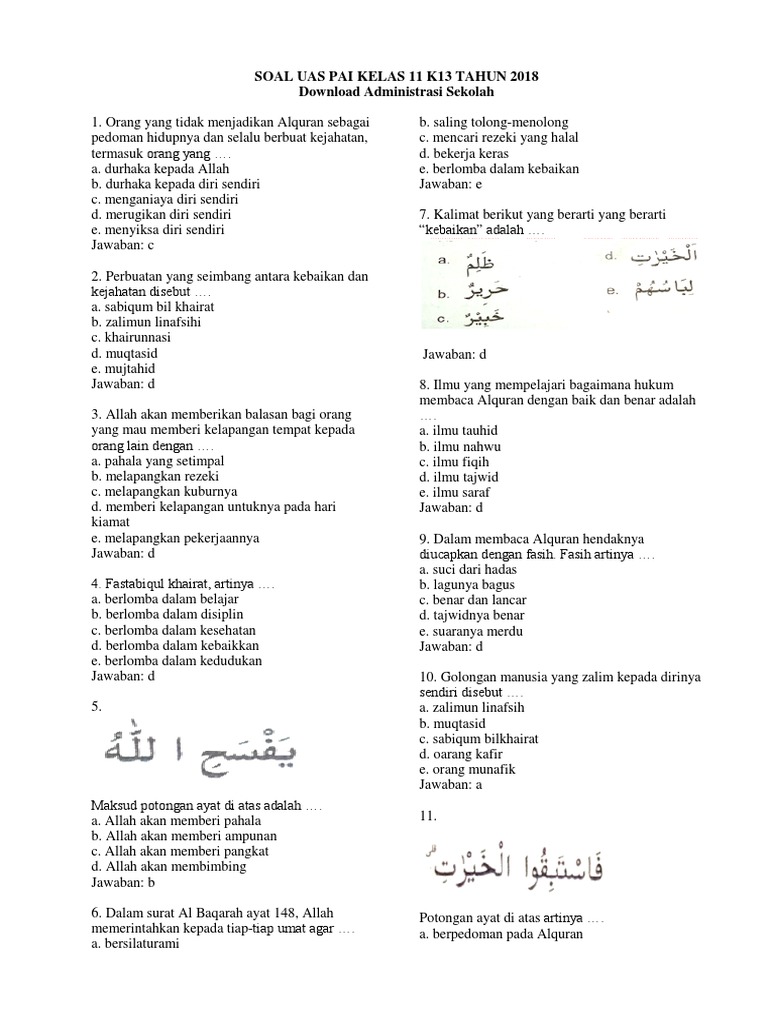 SOAL UAS PAI KELAS 11 K13 TAHUN 2018
Download Administrasi Sekolah
1. Orang yang tidak menjadikan Alquran sebagai
pedoman hidupnya dan selalu berbuat kejahatan,
termasuk orang yang ….
a. durhaka kepada Allah
b. durhaka kepada diri sendiri
c. menganiaya diri sendiri
d. merugikan diri sendiri
e. menyiksa diri sendiri
Jawaban: c
2. Perbuatan yang seimbang antara kebaikan dan
kejahatan disebut ….
a. sabiqum bil khairat
b. zalimun linafsihi
c. khairunnasi
d. muqtasid
e. mujtahid
Jawaban: d
3. Allah akan memberikan balasan bagi orang
yang mau memberi kelapangan tempat kepada
orang lain dengan ….
a. pahala yang setimpal
b. melapangkan rezeki
c. melapangkan kuburnya
d. memberi kelapangan untuknya pada hari
kiamat
e. melapangkan pekerjaannya
Jawaban: d
4. Fastabiqul khairat, artinya ….
a. berlomba dalam belajar
b. berlomba dalam disiplin
c. berlomba dalam kesehatan
d. berlomba dalam kebaikkan
e. berlomba dalam kedudukan
Jawaban: d
5.
يَفْسَحِ اللّٰهُ
Maksud potongan ayat di atas adalah ….
a. Allah akan memberi pahala
b. Allah akan memberi ampunan
c. Allah akan memberi pangkat
d. Allah akan membimbing
Jawaban: b
6. Dalam surat Al Baqarah ayat 148, Allah
memerintahkan kepada tiap-tiap umat agar ….
a. bersilaturami
b. saling tolong-menolong
c. mencari rezeki yang halal
d. bekerja keras
e. berlomba dalam kebaikan
Jawaban: e
7. Kalimat berikut yang berarti yang berarti
“kebaikan” adalah ….
a. ظَلِمٌ
b. حَرِيرٌ
c. خَبِيْرٌ
d. اَلْخَيْرٰتِ
e. لِبَاسُهُمْ
Jawaban: d
8. Ilmu yang mempelajari bagaimana hukum
membaca Alquran dengan baik dan benar adalah
….
a. ilmu tauhid
b. ilmu nahwu
c. ilmu fiqih
d. ilmu tajwid
e. ilmu saraf
Jawaban: d
9. Dalam membaca Alquran hendaknya
diucapkan dengan fasih. Fasih artinya ….
a. suci dari hadas
b. lagunya bagus
c. benar dan lancar
d. tajwidnya benar
e. suaranya merdu
Jawaban: d
10. Golongan manusia yang zalim kepada dirinya
sendiri disebut ….
a. zalimun linafsih
b. muqtasid
c. sabiqum bilkhairat
d. oarang kafir
e. orang munafik
Jawaban: a
11.
فَاسْتَبِقُوا الْخَيْرٰتِ ۗ
Potongan ayat di atas artinya ….
a. berpedoman pada Alquran